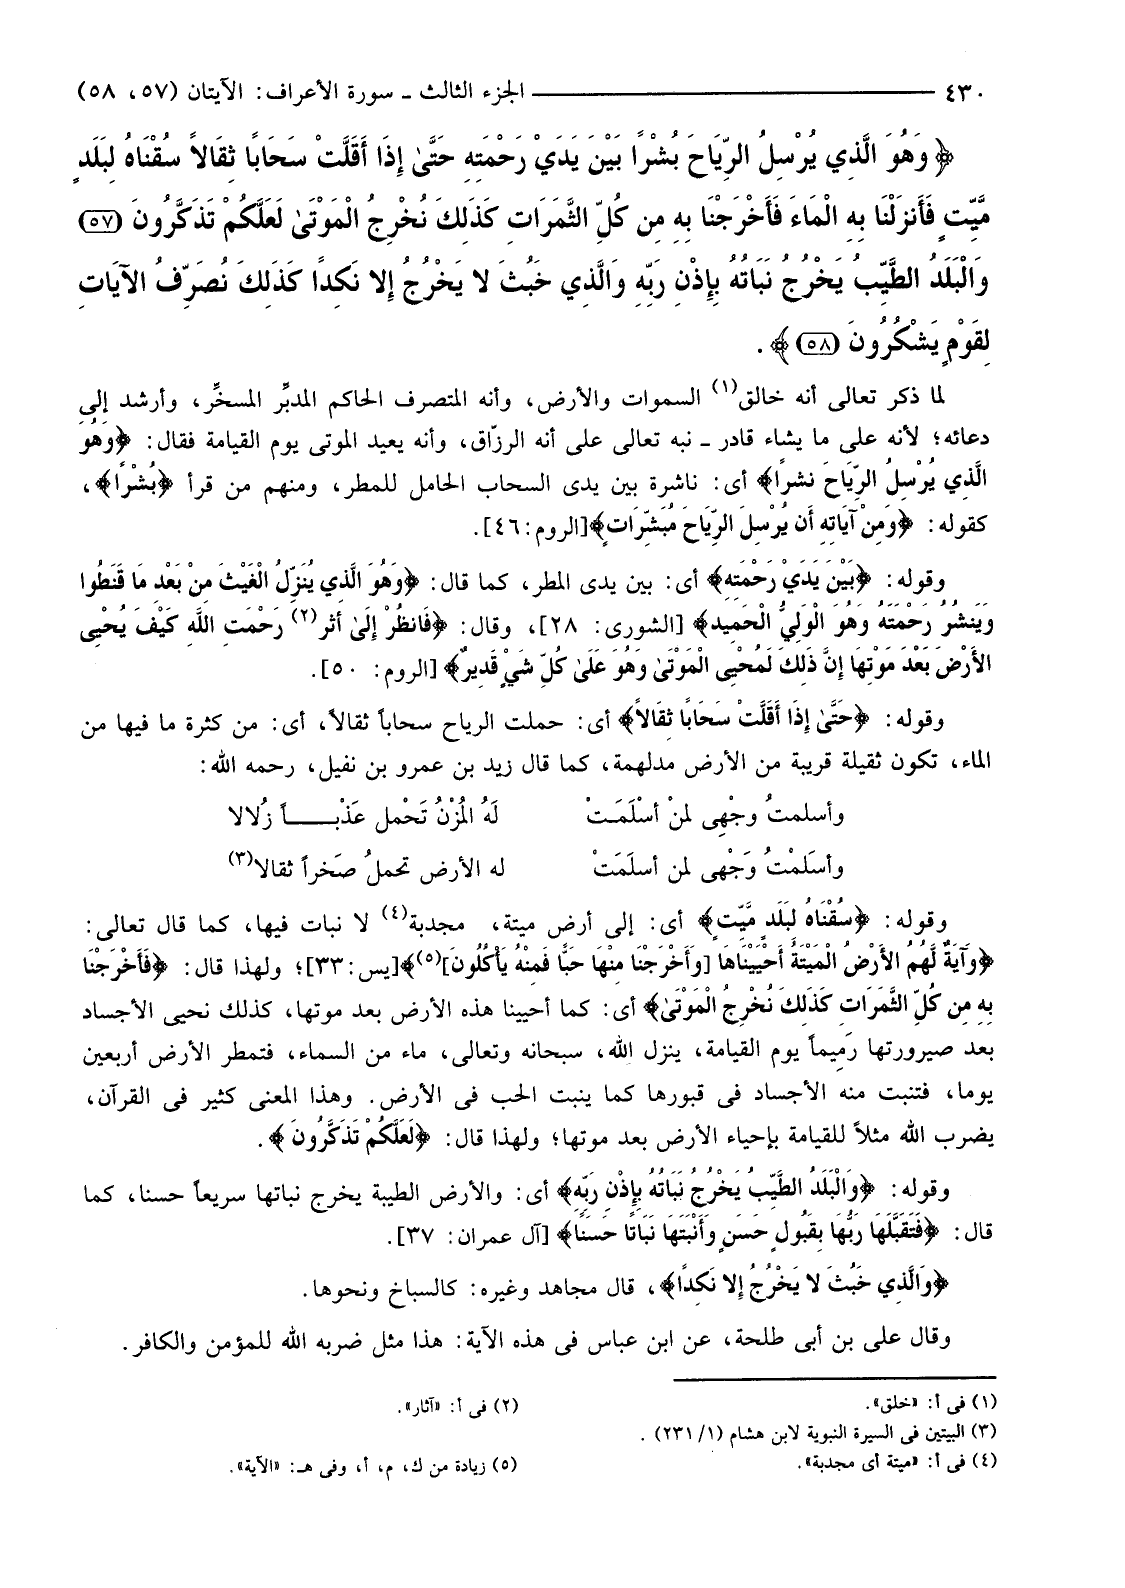 ٤٣٠ ــــــــــــــــ الجزء الثالث ـ سورة الأعراف: الآيتان (٥٧، ٥٨)
﴿وَهُوَ الَّذِي يُرْسِلُ الرِّيَاحَ بُشْرًا بَيْنَ يَدَيْ رَحْمَتِهِ حَتَّىٰ إِذَا أَقَلَّتْ سَحَابًا ثِقَالاً سُقْنَاهُ لِبَلَدٍ
مَّيِّتٍ فَأَنزَلْنَا بِهِ الْمَاءَ فَأَخْرَجْنَا بِهِ مِن كُلِّ الثَّمَرَاتِ كَذَلِكَ نُخْرِجُ الْمَوْتَىٰ لَعَلَّكُمْ تَذَكَّرُونَ (٥٧)
وَالْبَلَدُ الطَّيِّبُ يَخْرُجُ نَبَاتُهُ بِإِذْنِ رَبِّهِ وَالَّذِي خَبُثَ لا يَخْرُجُ إِلا نَكِدًا كَذَلِكَ نُصَرِّفُ الآيَاتِ
لِقَوْمٍ يَشْكُرُونَ (٥٨)﴾.
لما ذكر تعالى أنه خالق(١) السموات والأرض، وأنه المتصرف الحاكم المدبِّر المسخِّر، وأرشد إلى
دعائه؛ لأنه على ما يشاء قادر ـ نبه تعالى على أنه الرزّاق، وأنه يعيد الموتى يوم القيامة فقال: ﴿وَهُوَ
الَّذِي يُرْسِلُ الرِّيَاحَ نشرًا﴾ أى: ناشرة بين يدى السحاب الحامل للمطر، ومنهم من قرأ ﴿بُشْرًا﴾،
كقوله: ﴿وَمِنْ آيَاتِهِ أَن يُرْسِلَ الرِّيَاحَ مُبَشِّرَاتٍ﴾[الروم:٤٦].
وقوله: ﴿بَيْنَ يَدَيْ رَحْمَتِهِ﴾ أى: بين يدى المطر، كما قال: ﴿وَهُوَ الَّذِي يُنَزِّلُ الْغَيْثَ مِنْ بَعْدِ مَا قَنَطُوا
وَيَنشُرُ رَحْمَتَهُ وَهُوَ الْوَلِيُّ الْحَمِيد﴾ [الشورى: ٢٨]، وقال: ﴿فَانظُرْ إِلَىٰ أثر(٢) رَحْمَتِ اللَّهِ كَيْفَ يُحْيِي
الأَرْضَ بَعْدَ مَوْتِهَا إِنَّ ذَلِكَ لَمُحْيِي الْمَوْتَىٰ وَهُوَ عَلَىٰ كُلِّ شَيْءٍ قَدِيرٌ﴾ [الروم: ٥٠].
وقوله: ﴿حَتَّىٰ إِذَا أَقَلَّتْ سَحَابًا ثِقَالاً﴾ أى: حملت الرياح سحاباً ثقالاً، أى: من كثرة ما فيها من
الماء، تكون ثقيلة قريبة من الأرض مدلهمة، كما قال زيد بن عمرو بن نفيل، رحمه الله:
وأسلمتُ وجْهِى لمنْ أسْلَمَـتْ لَهُ المُزْنُ تَحْمل عَذْبـــــاً زُلالا
وأسَلمْتُ وَجْهى لمن أسلَمَتْ له الأرض تحملُ صَخراً ثقالا(٣)
وقوله: ﴿سُقْنَاهُ لِبَلَدٍ مَّيِّتٍ﴾ أى: إلى أرض ميتة، مجدبة(٤) لا نبات فيها، كما قال تعالى:
﴿وَآيَةٌ لَّهُمُ الأَرْضُ الْمَيْتَةُ أَحْيَيْنَاهَا [وَأَخْرَجْنَا مِنْهَا حَبًّا فَمِنْهُ يَأْكُلُونَ](٥)﴾[يس:٣٣]؛ ولهذا قال: ﴿فَأَخْرَجْنَا
بِهِ مِن كُلِّ الثَّمَرَاتِ كَذَلِكَ نُخْرِجُ الْمَوْتَىٰ﴾ أى: كما أحيينا هذه الأرض بعد موتها، كذلك نحيى الأجساد
بعد صيرورتها رَمِيماً يوم القيامة، ينزل الله، سبحانه وتعالى، ماء من السماء، فتمطر الأرض أربعين
يوما، فتنبت منه الأجساد فى قبورها كما ينبت الحب فى الأرض. وهذا المعنى كثير فى القرآن،
يضرب الله مثلاً للقيامة بإحياء الأرض بعد موتها؛ ولهذا قال: ﴿لَعَلَّكُمْ تَذَكَّرُونَ ﴾.
وقوله: ﴿وَالْبَلَدُ الطَّيِّبُ يَخْرُجُ نَبَاتُهُ بِإِذْنِ رَبِّهِ﴾ أى: والأرض الطيبة يخرج نباتها سريعاً حسنا، كما
قال: ﴿فَتَقَبَّلَهَا رَبُّهَا بِقَبُولٍ حَسَنٍ وَأَنْبَتَهَا نَبَاتًا حَسَنًا﴾ [آل عمران: ٣٧].
﴿وَالَّذِي خَبُثَ لا يَخْرُجُ إِلا نَكِدًا﴾، قال مجاهد وغيره: كالسباخ ونحوها.
وقال على بن أبى طلحة، عن ابن عباس فى هذه الآية: هذا مثل ضربه الله للمؤمن والكافر.
(١) فى أ: «خلق». (٢) فى أ: «آثار».
(٣) البيتين فى السيرة النبوية لابن هشام (١/ ٢٣١) .
(٤) فى أ: «ميتة أى مجدبة». (٥) زيادة من ك، م، أ، وفى هـ: «الآية».